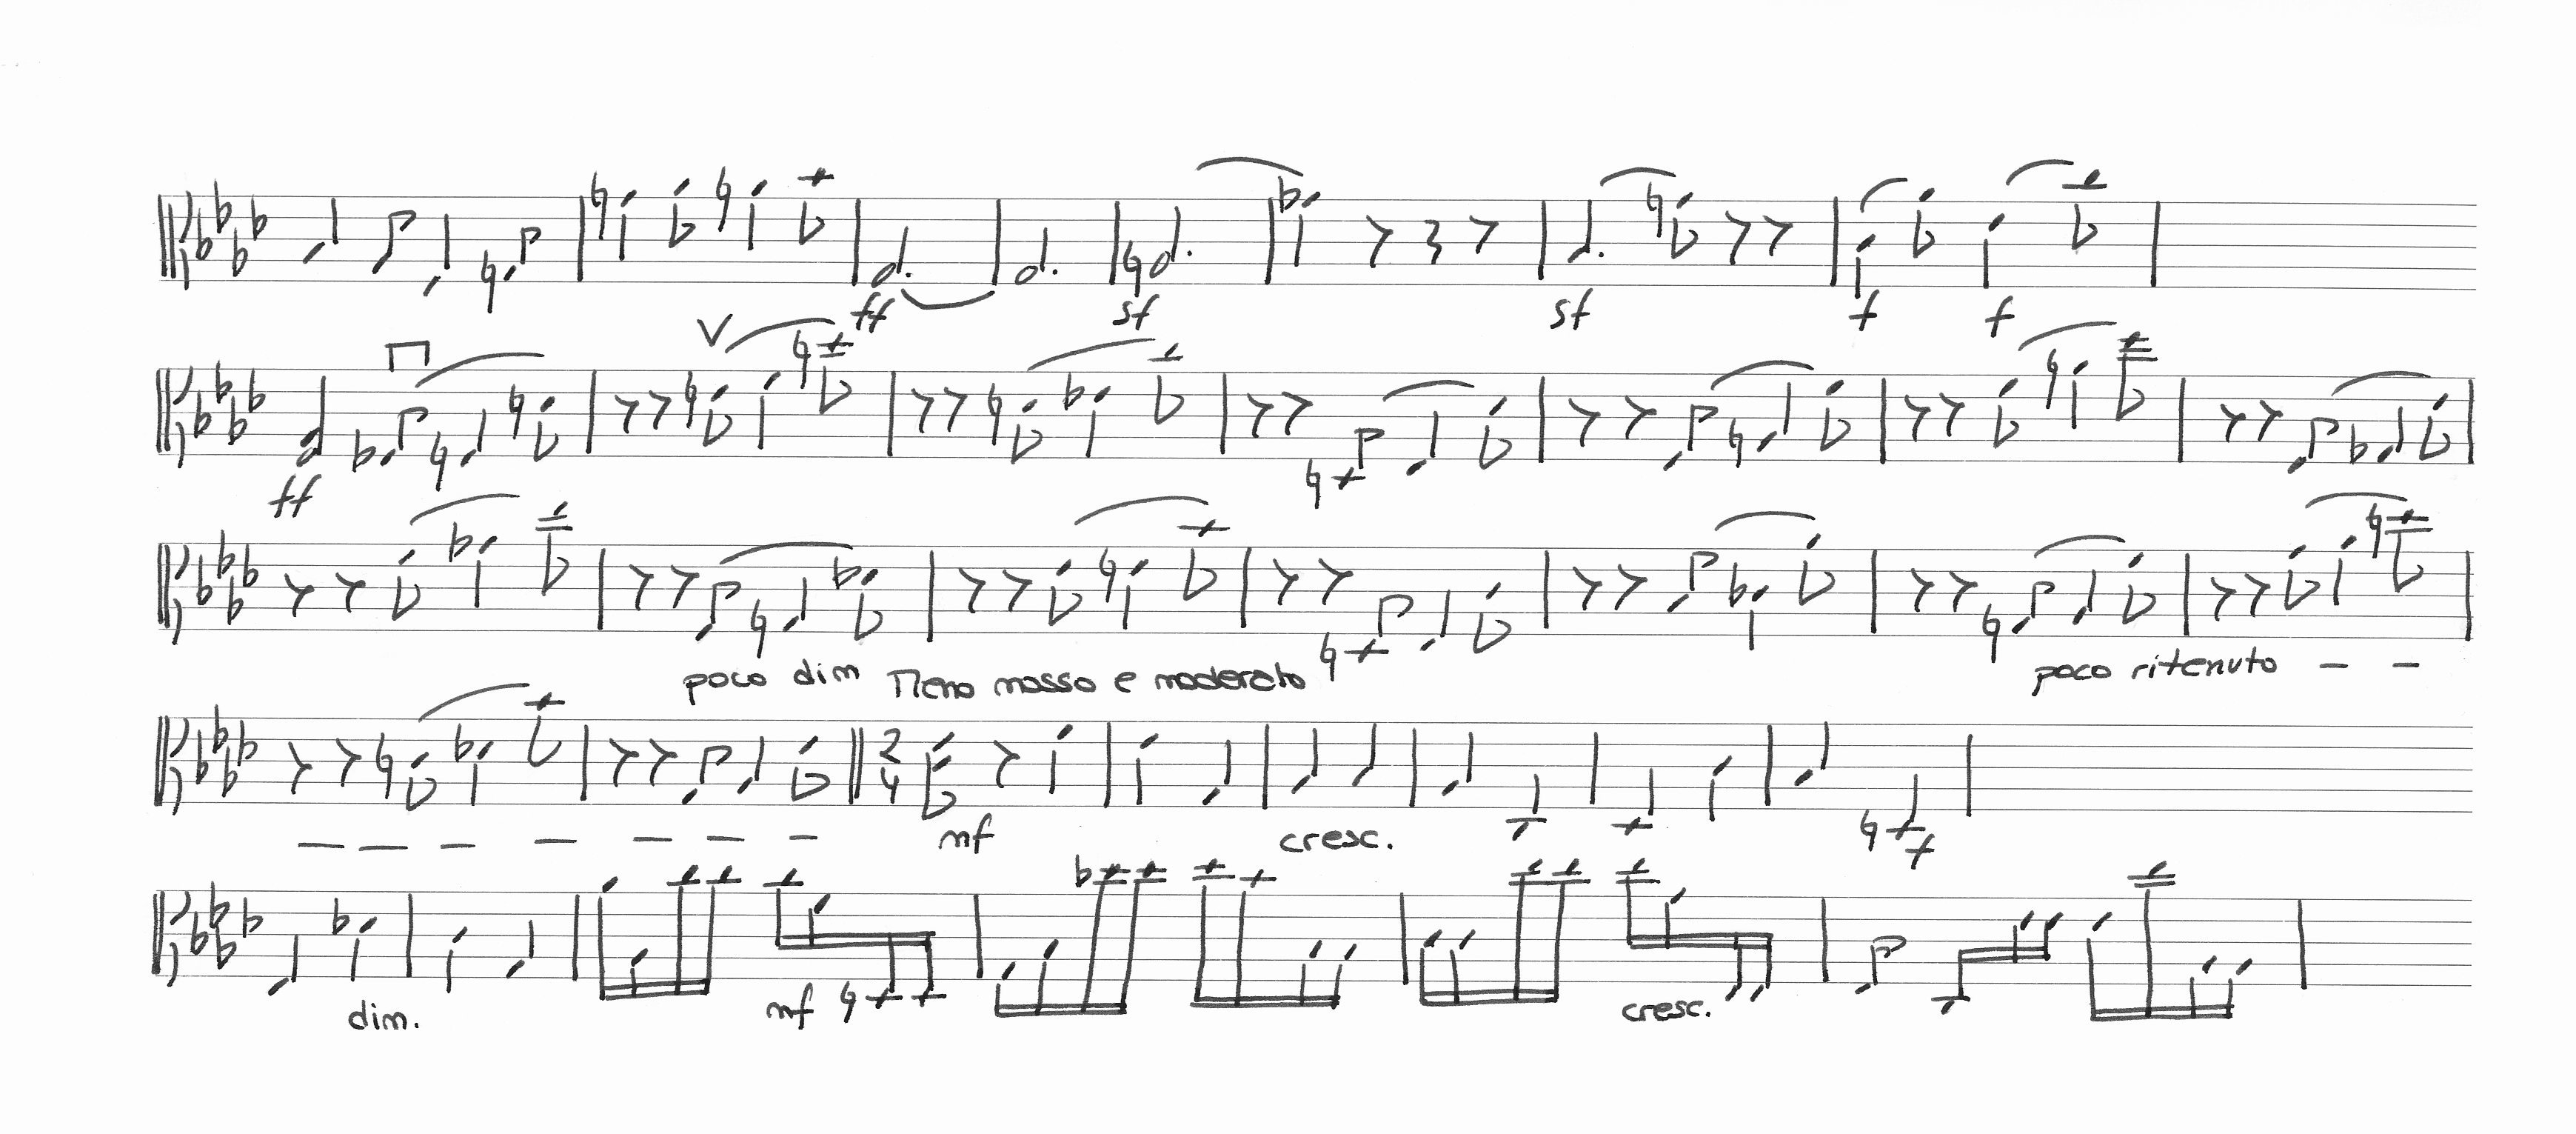 ff sf sf f f
ff
poco dim Meno mosso e moderato poco ritenuto – –
– – – – – – –
2
4
mf cresc. f
dim. mf cresc.